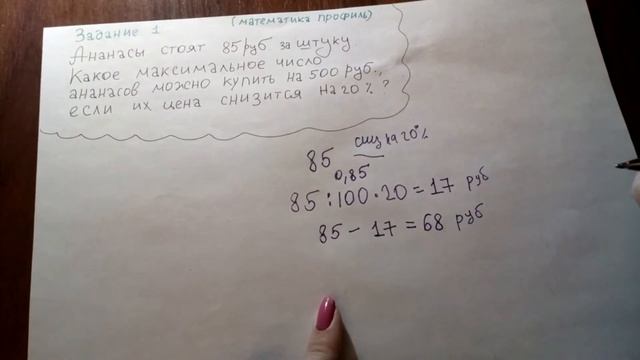 Задание 1 (математика профиль)
Ананасы стоят 85 руб за штуку
Какое максимальное число
ананасов можно купить на 500 руб.,
если их цена снизится на 20 % ?
85 сниз на 20%
0,85
85 : 100 · 20 = 17 руб
85 - 17 = 68 руб